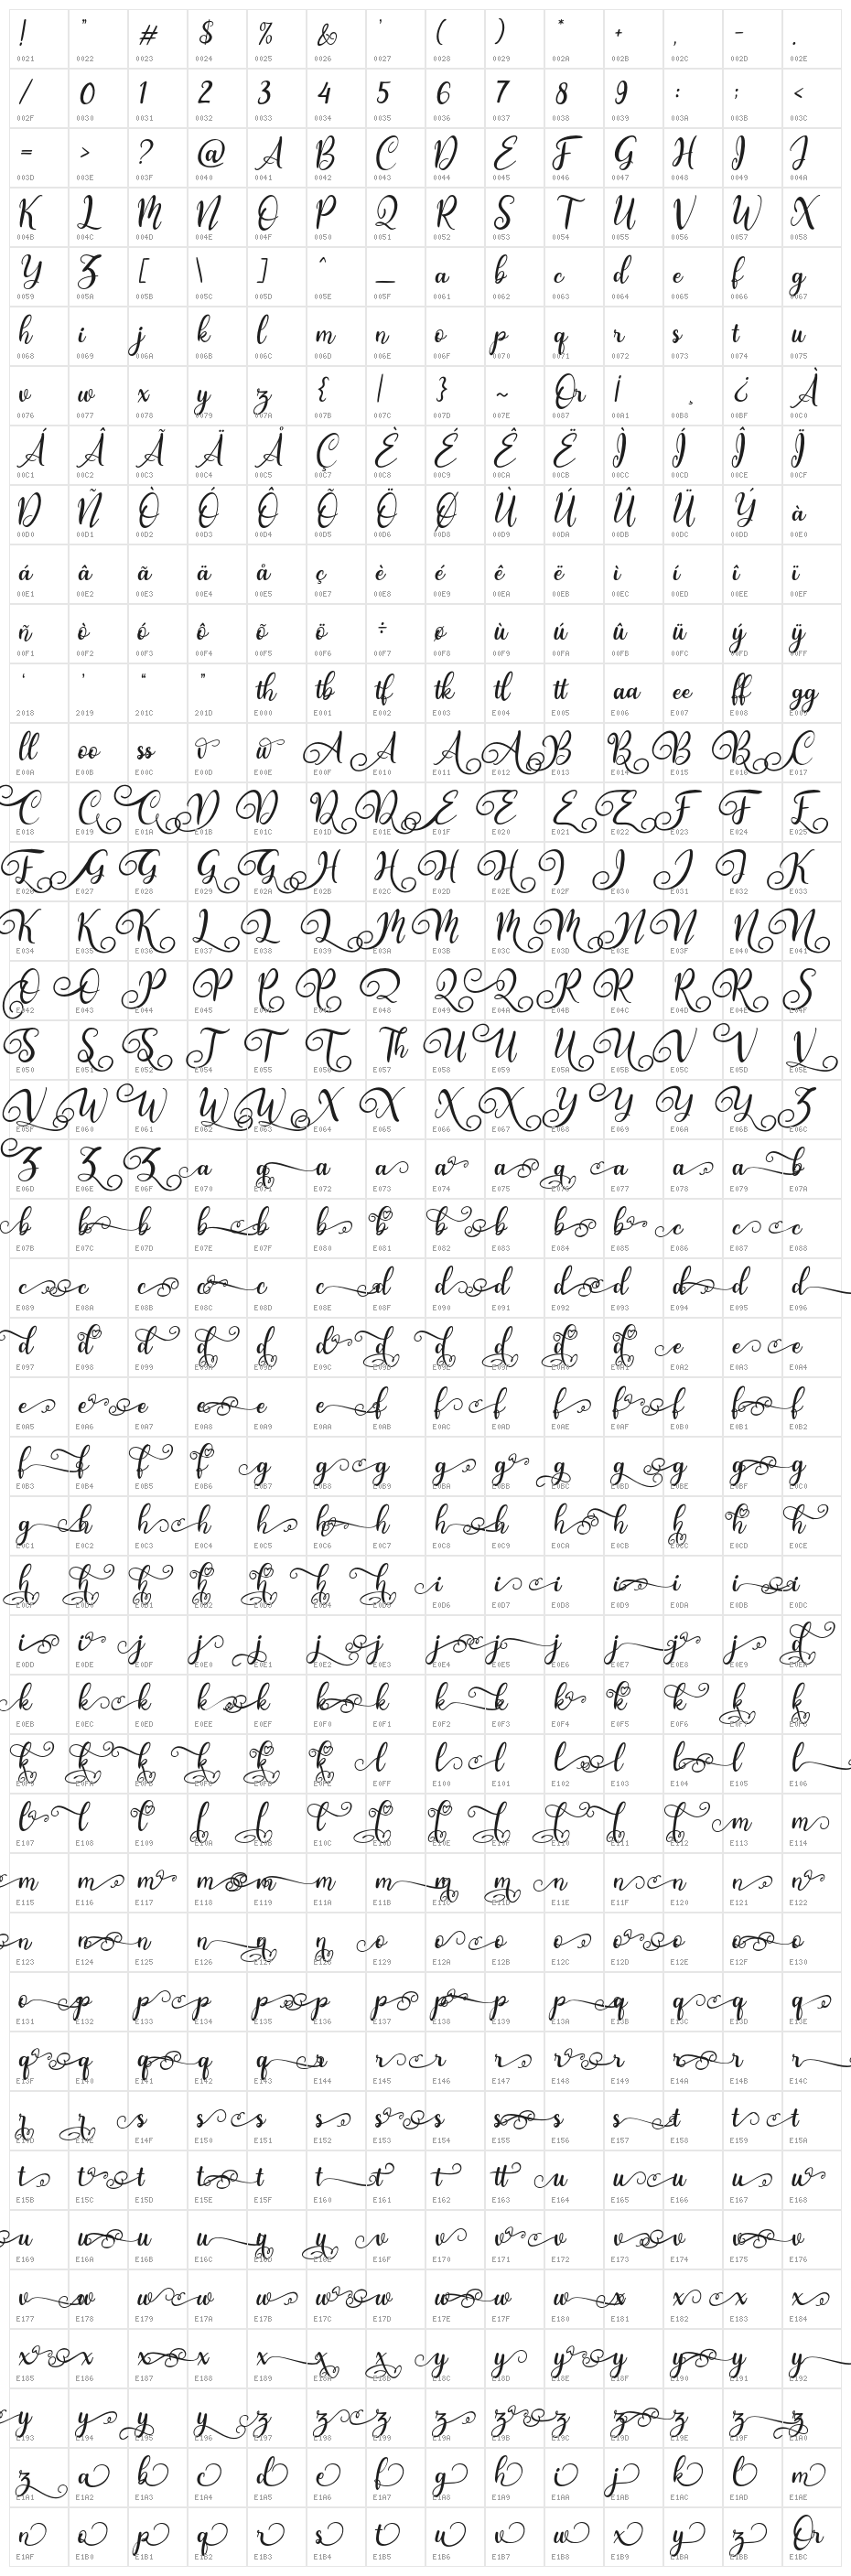 ! " # $ % & ' ( ) * + , - .
0021 0022 0023 0024 0025 0026 0027 0028 0029 002A 002B 002C 002D 002E
/ 0 1 2 3 4 5 6 7 8 9 : ; <
002F 0030 0031 0032 0033 0034 0035 0036 0037 0038 0039 003A 003B 003C
= > ? @ A B C D E F G H I J
003D 003E 003F 0040 0041 0042 0043 0044 0045 0046 0047 0048 0049 004A
K L M N O P Q R S T U V W X
004B 004C 004D 004E 004F 0050 0051 0052 0053 0054 0055 0056 0057 0058
Y Z [ \ ] ^ _ a b c d e f g
0059 005A 005B 005C 005D 005E 005F 0061 0062 0063 0064 0065 0066 0067
h i j k l m n o p q r s t u
0068 0069 006A 006B 006C 006D 006E 006F 0070 0071 0072 0073 0074 0075
v w x y z { | } ~ Or ¡ ¸ ¿ À
0076 0077 0078 0079 007A 007B 007C 007D 007E 0087 00A1 00B8 00BF 00C0
Á Â Ã Ä Å Ç È É Ê Ë Ì Í Î Ï
00C1 00C2 00C3 00C4 00C5 00C7 00C8 00C9 00CA 00CB 00CC 00CD 00CE 00CF
D Ñ Ò Ó Ô Õ Ö Ø Ù Ú Û Ü Ý à
00D0 00D1 00D2 00D3 00D4 00D5 00D6 00D8 00D9 00DA 00DB 00DC 00DD 00E0
á â ã ä å ç è é ê ë ì í î ï
00E1 00E2 00E3 00E4 00E5 00E7 00E8 00E9 00EA 00EB 00EC 00ED 00EE 00EF
ñ ò ó ô õ ö ÷ ø ù ú û ü ý ÿ
00F1 00F2 00F3 00F4 00F5 00F6 00F7 00F8 00F9 00FA 00FB 00FC 00FD 00FF
‘ ’ “ ” th tb tf tk tl tt aa ee ff gg
2018 2019 201C 201D E000 E001 E002 E003 E004 E005 E006 E007 E008 E009
ll oo ss v w A A A A B B B B C
E00A E00B E00C E00D E00E E00F E010 E011 E012 E013 E014 E015 E016 E017
C C C D D D D E E E E F F F
E018 E019 E01A E01B E01C E01D E01E E01F E020 E021 E022 E023 E024 E025
F G G G G H H H H I I J J K
E026 E027 E028 E029 E02A E02B E02C E02D E02E E02F E030 E031 E032 E033
K K K L L L M M M M N N N N
E034 E035 E036 E037 E038 E039 E03A E03B E03C E03D E03E E03F E040 E041
O O P P P P Q Q Q R R R R S
E042 E043 E044 E045 E046 E047 E048 E049 E04A E04B E04C E04D E04E E04F
S S S T T T Th U U U U V V V
E050 E051 E052 E054 E055 E056 E057 E058 E059 E05A E05B E05C E05D E05E
V W W W W X X X X Y Y Y Y Z
E05F E060 E061 E062 E063 E064 E065 E066 E067 E068 E069 E06A E06B E06C
Z Z Z a a a a a a a a a a b
E06D E06E E06F E070 E071 E072 E073 E074 E075 E076 E077 E078 E079 E07A
b b b b b b b b b b b c c c
E07B E07C E07D E07E E07F E080 E081 E082 E083 E084 E085 E086 E087 E088
c c c c c c d d d d d d d d
E089 E08A E08B E08C E08D E08E E08F E090 E091 E092 E093 E094 E095 E096
d d d d d d d d d d d e e e
E097 E098 E099 E09A E09B E09C E09D E09E E09F E0A0 E0A1 E0A2 E0A3 E0A4
e e e e e e f f f f f f f f
E0A5 E0A6 E0A7 E0A8 E0A9 E0AA E0AB E0AC E0AD E0AE E0AF E0B0 E0B1 E0B2
f f f f g g g g g g g g g g
E0B3 E0B4 E0B5 E0B6 E0B7 E0B8 E0B9 E0BA E0BB E0BC E0BD E0BE E0BF E0C0
g h h h h h h h h h h h h h
E0C1 E0C2 E0C3 E0C4 E0C5 E0C6 E0C7 E0C8 E0C9 E0CA E0CB E0CC E0CD E0CE
h h h h h h h i i i i i i i
E0CF E0D0 E0D1 E0D2 E0D3 E0D4 E0D5 E0D6 E0D7 E0D8 E0D9 E0DA E0DB E0DC
i i j j j j j j j j j j j d
E0DD E0DE E0DF E0E0 E0E1 E0E2 E0E3 E0E4 E0E5 E0E6 E0E7 E0E8 E0E9 E0EA
k k k k k k k k k k k k k k
E0EB E0EC E0ED E0EE E0EF E0F0 E0F1 E0F2 E0F3 E0F4 E0F5 E0F6 E0F7 E0F8
k k k k k k l l l l l l l l
E0F9 E0FA E0FB E0FC E0FD E0FE E0FF E100 E101 E102 E103 E104 E105 E106
l l l l l l l l l l l l m m
E107 E108 E109 E10A E10B E10C E10D E10E E10F E110 E111 E112 E113 E114
m m m m m m m m m n n n n n
E115 E116 E117 E118 E119 E11A E11B E11C E11D E11E E11F E120 E121 E122
n n n n n n o o o o o o o o
E123 E124 E125 E126 E127 E128 E129 E12A E12B E12C E12D E12E E12F E130
o p p p p p p p p p q q q q
E131 E132 E133 E134 E135 E136 E137 E138 E139 E13A E13B E13C E13D E13E
q q q q q r r r r r r r r r
E13F E140 E141 E142 E143 E144 E145 E146 E147 E148 E149 E14A E14B E14C
r r s s s s s s s s s t t t
E14D E14E E14F E150 E151 E152 E153 E154 E155 E156 E157 E158 E159 E15A
t t t t t t t t tt u u u u u
E15B E15C E15D E15E E15F E160 E161 E162 E163 E164 E165 E166 E167 E168
u u u u u u v v v v v v v v
E169 E16A E16B E16C E16D E16E E16F E170 E171 E172 E173 E174 E175 E176
v w w w w w w w w w x x x x
E177 E178 E179 E17A E17B E17C E17D E17E E17F E180 E181 E182 E183 E184
x x x x x x x y y y y y y y
E185 E186 E187 E188 E189 E18A E18B E18C E18D E18E E18F E190 E191 E192
y y y y z z z z z z z z z z
E193 E194 E195 E196 E197 E198 E199 E19A E19B E19C E19D E19E E19F E1A0
z a b c d e f g h i j k l m
E1A1 E1A2 E1A3 E1A4 E1A5 E1A6 E1A7 E1A8 E1A9 E1AA E1AB E1AC E1AD E1AE
n o p q r s t u v w x y z Or
E1AF E1B0 E1B1 E1B2 E1B3 E1B4 E1B5 E1B6 E1B7 E1B8 E1B9 E1BA E1BB E1BC